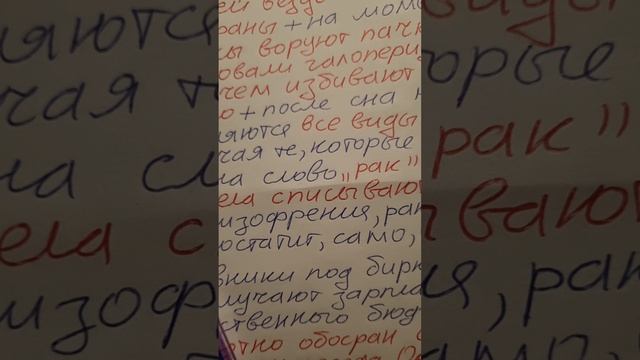 ей везде
раны + на мом
ы воруют пач
овали галопери
чем избивают
о + после сна н
яются все виды
чая те, которые
на слово „рак”
ела списывают
изофрения, рак
остатит, само,
вники под бирк
лучают зарпла
ственного бюд
тно обосран